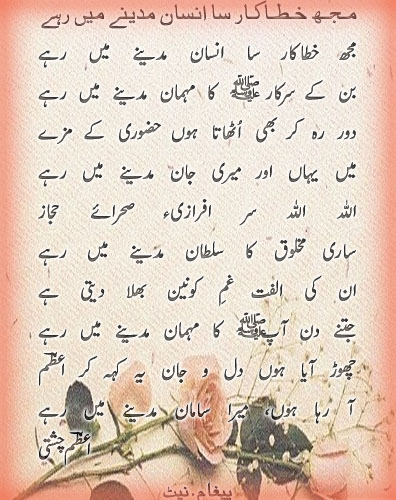 مجھ خطاکار سا انسان مدینے میں رہے
مجھ خطاکار سا انسان مدینے میں رہے
بن کے سرکار ﷺ کا مہمان مدینے میں رہے
دور رہ کر بھی اُٹھاتا ہوں حضوری کے مزے
میں یہاں اور میری جان مدینے میں رہے
اللہ اللہ سر افرازیء صحرائے حجاز
ساری مخلوق کا سلطان مدینے میں رہے
ان کی الفت غمِ کونین بھلا دیتی ہے
جتنے دن آپ ﷺ کا مہمان مدینے میں رہے
چھوڑ آیا ہوں دل و جان یہ کہہ کر اعظم
آ رہا ہوں، میرا سامان مدینے میں رہے
اعظم چشتی
پیغام.نیٹ